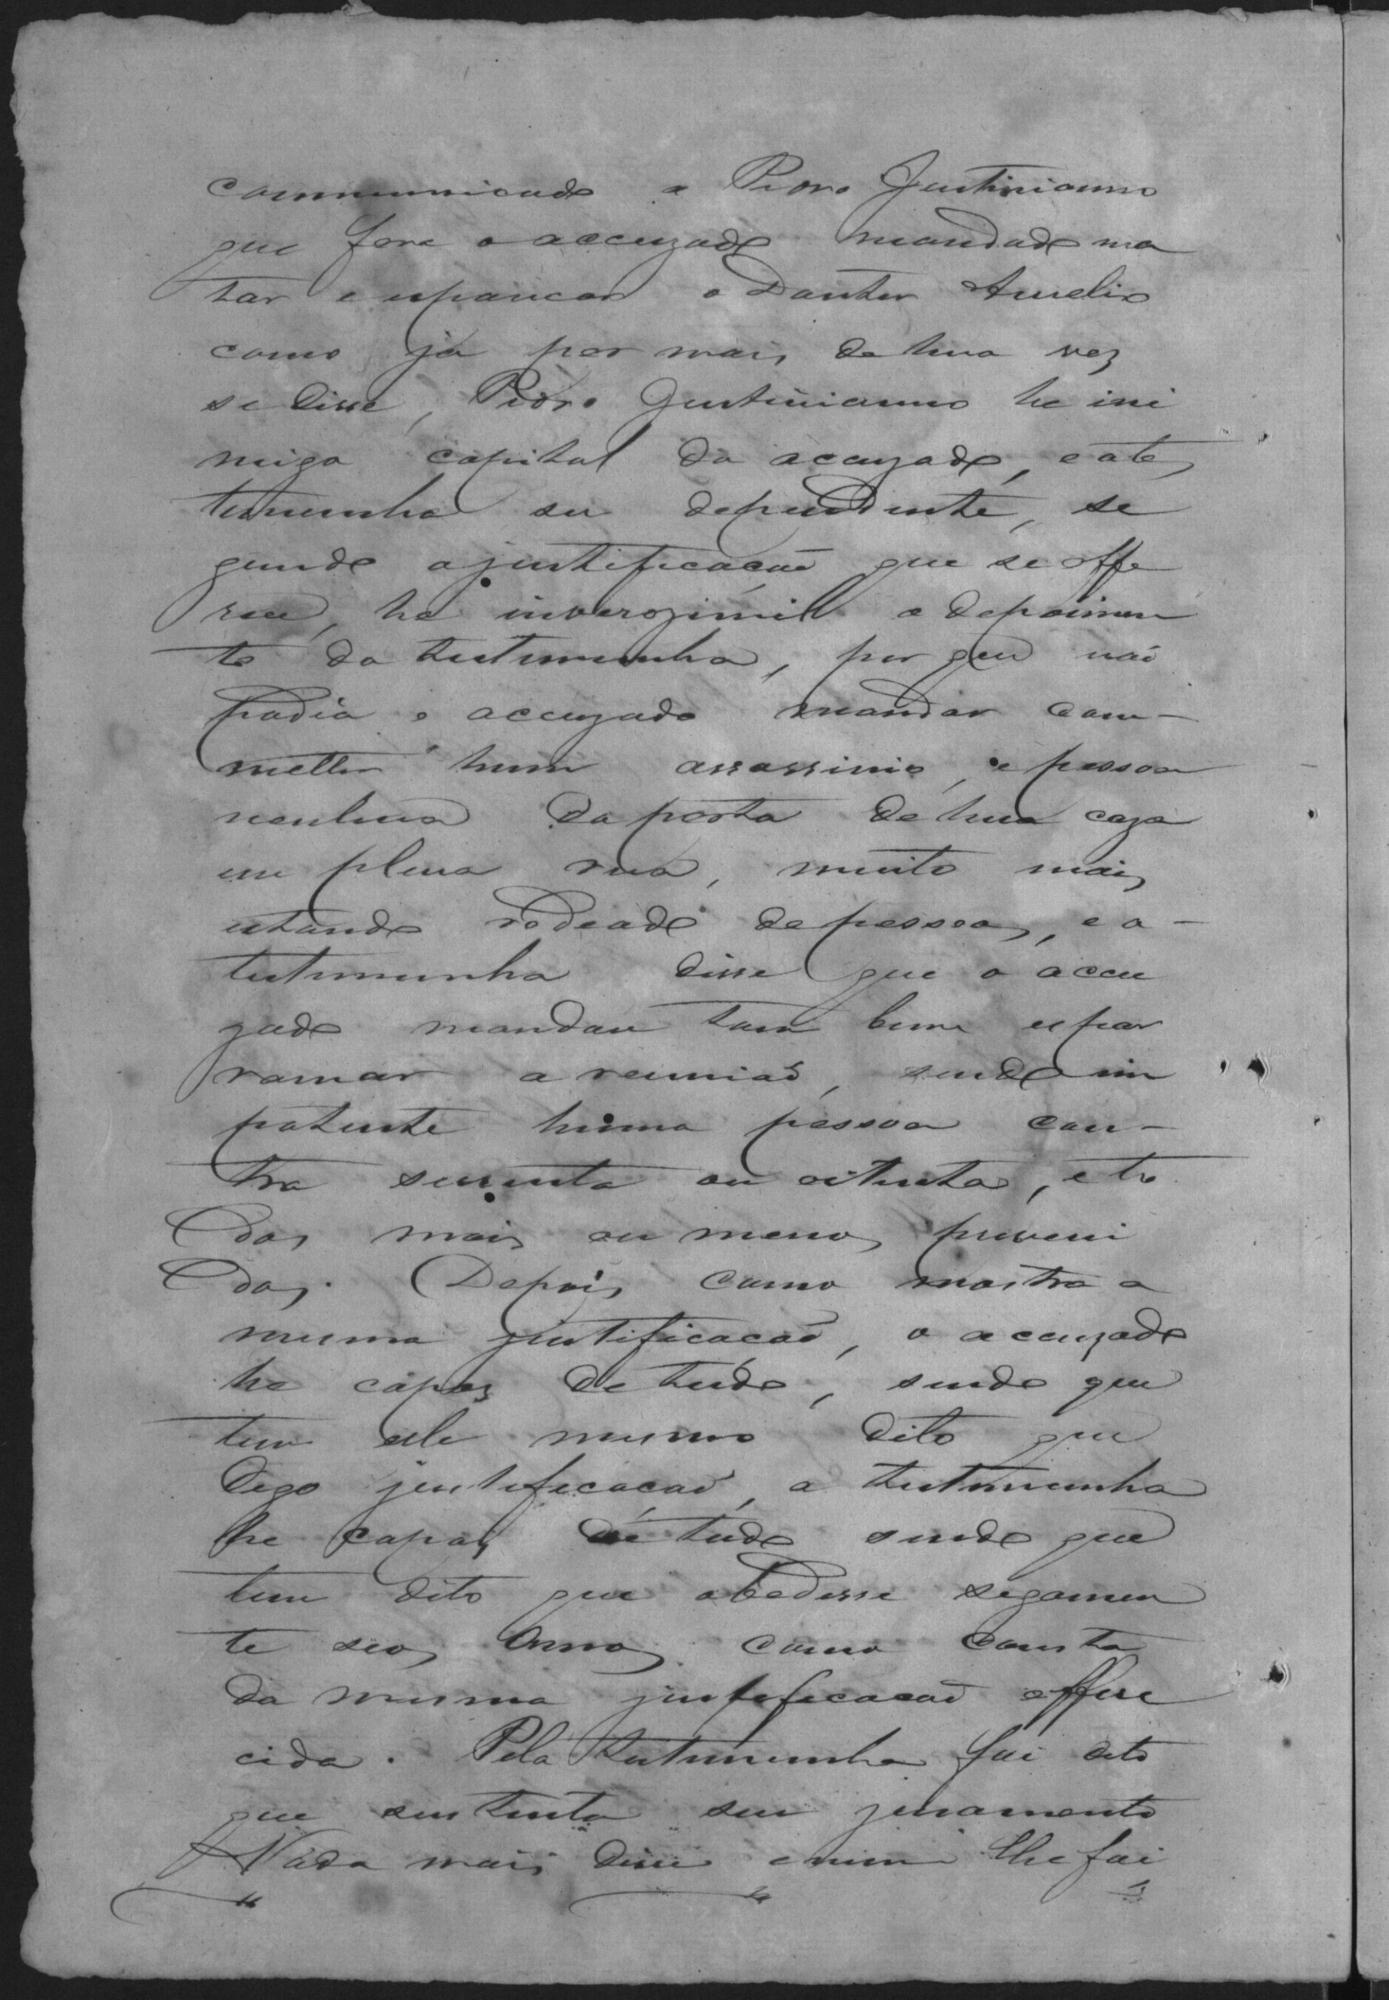 communicado a Pedro Justinianno
que fora o accuzado mandado ma
tar e espancar o Doutor Aurelio
como já por mais de hua vez
se disse, Pedro Justinianno he ini
migo capital do accuzado, e a tes
temunha seu dependente, se
gundo a justificacaõ que se offe
rece, he inverozimil o depoimen
to da testemunha, por que naõ
podia o accuzado mandar com-
metter hum assassinio, e pessoa
nenhua da porta de hua caza
em plena rua, muito mais
estando rodeado de pessoas, e a-
testemunha disse que o accu
zado mandou tam bem espar
ramar a reuniaõ, sendo im
patente huma pessoa con-
tra sessenta ou oitenta, e to
dos mais ou menos preveni
dos. Depois como mostra a
mesma justificacaõ, o accuzado
he capaz de tudo, sendo que
tem elle mesmo dito que
digo justificacaõ, a testemunha
he capaz de tudo sendo que
tem dito que obedesse segamen
te seos Amos como consta
da mesma justificacaõ offere
cida. Pela testemunha foi dito
que sustenta seu juramento
Nada mais disse e nem lhe foi